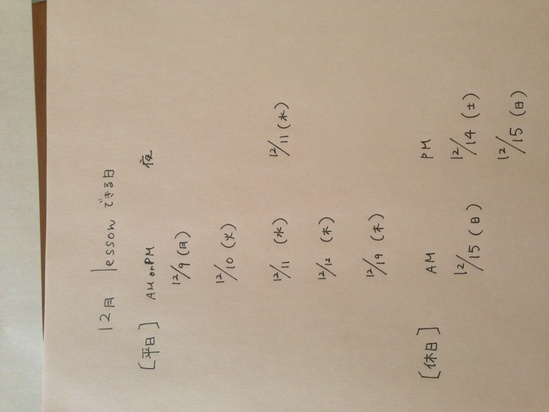 12月 lessonできる日
[平日] AM or PM 夜
12/9 (月)
12/10 (火)
12/11 (水) 12/11 (水)
12/12 (木)
12/19 (木)
[休日] AM PM
12/15 (日) 12/14 (土)
12/15 (日)